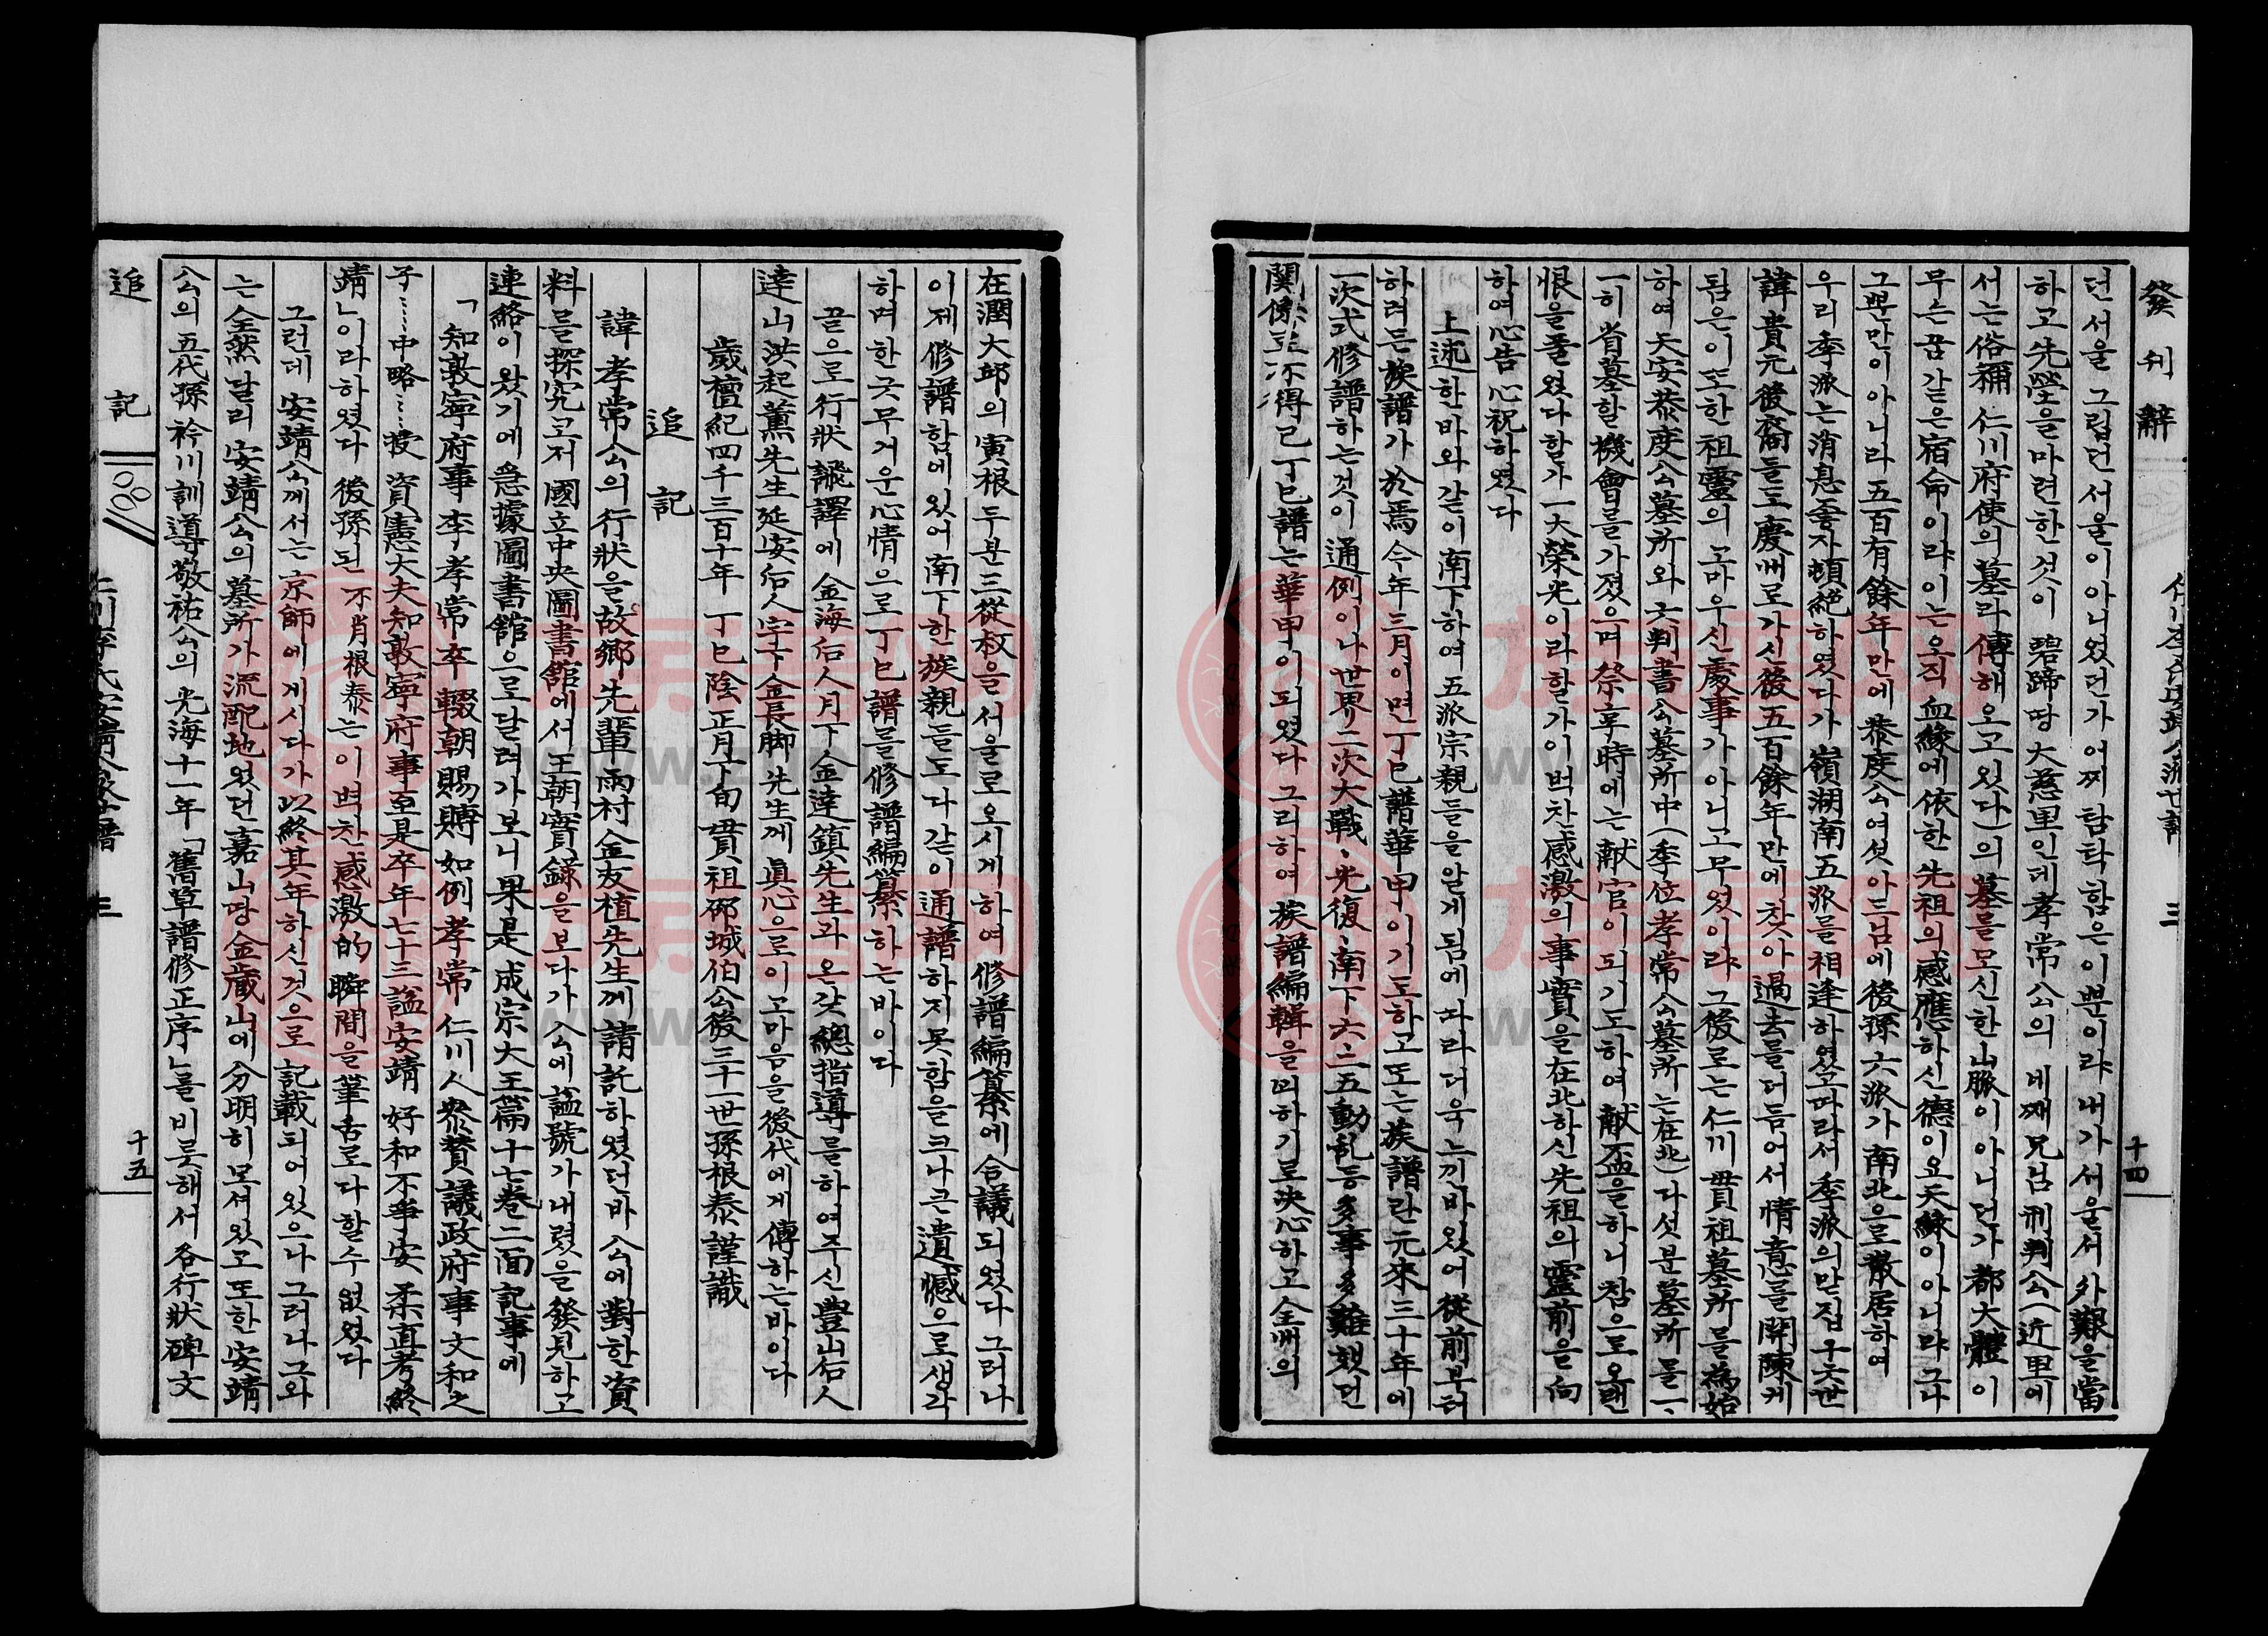 發刊辭
仁川李氏安靖公派世譜 三
十四
던서울 그립던서울이아니였던가어찌탐탁함은이뿐이랴 내가서울서外艱을當
하고先塋을마련한섯이 碧蹄땅大慈里인데孝常公의 네째兄님刑判公(近里에
서는俗稱 仁川府使의墓라傳해오고있다)의墓를모신한山脈이아니던가 都大體이
무슨꿈같은宿命이랴이는오직血緣에依한先祖의感應하신德이요天緣이아니랴그나
그뿐만이아니라五百有餘年만에 恭度公여섯아드님에後孫六派가南北으로散居하여
우리季派는消息좇자頓絕하였다가嶺湖南五派를相逢하였고따라서季派의맏집十六世
諱貴元後裔들도慶州로가신後五百餘年만에찾아過去를더듬어서情意를開陳케
됨은이또한祖靈의고마우신慶事가아니고무엇이랴 그後로는仁川貫祖墓所를爲始
하여天安恭度公墓所와六判書公墓所中(季位孝常公墓所는在北)다섯분墓所를一、
一히省墓할機會를가졌으며祭享時에는獻官이되기도하여獻盃을하니참으로오랜
恨을풀었다할가一大榮光이라할가이벅찬感激의事實을在北하신先祖의靈前을向
하여心告心祝하였다
上述한바와같이南下하여五派宗親들을알게됨에따라더욱느낀바있어從前부터
하려든族譜가於焉今年三月이면丁巳譜華甲이기도하고또는族譜란元來三十年에
一次式修譜하는것이通例이나世界二次大戰、光復、南下六二五動乱等多事多難했던
関係로不得已丁巳譜는華甲이되였다 그리하여族譜編輯을꾀하기로決心하고全州의
在潤大邱의寅根두분三從叔을서울로오시게하여修譜編纂에合議되였다그러나
이제修譜함에있어南下한族親들도다같이通譜하지못함을크나큰遺憾으로생각
하며한긋무거운心情으로丁巳譜를修譜編纂하는바이다
끝으로行狀飜譯에 金海后人月下金達鎮先生과온갖總指導를하여주신豊山后人
達山洪起薰先生延安后人宇下金長脚先生께眞心으로이고마음을後代에게傳하는바이다
歲檀紀四千三百十年 丁巳陰正月下旬貫祖邵城伯公後三十一世孫根泰謹識
追記
諱孝常公의行狀을故鄕先輩雨村金友植先生께請託하였던바公에對한資
料를探究코저 國立中央圖書館에서王朝實錄을보다가公에諡號가내렸을發見하고
連絡이왔기에急據圖書館으로달려가보니果是成宗大王篇十七卷二面記事에
「知敦寧府事李孝常卒輟朝賜賻如例孝常仁川人參贊議政府事文和之
子……中略……授資憲大夫知敦寧府事至是卒年七十三諡安靖好和不爭安柔直考終
靖」이라하였다後孫된不肖根泰는이벅찬感激的瞬間을筆舌로다할수없었다
그런데安靖公께서는京師에게시다가以終其年하신것으로記載되어있으나그러나그와
는全然달리安靖公의墓所가流配地였던嘉山땅金藏山에分明히모셔있고또한安靖
公의五代孫衿川訓導敬祐公의光海十一年「舊草譜修正序」를비롯해서各行狀碑文
追記
仁川李氏安靖公派世譜 三
十五